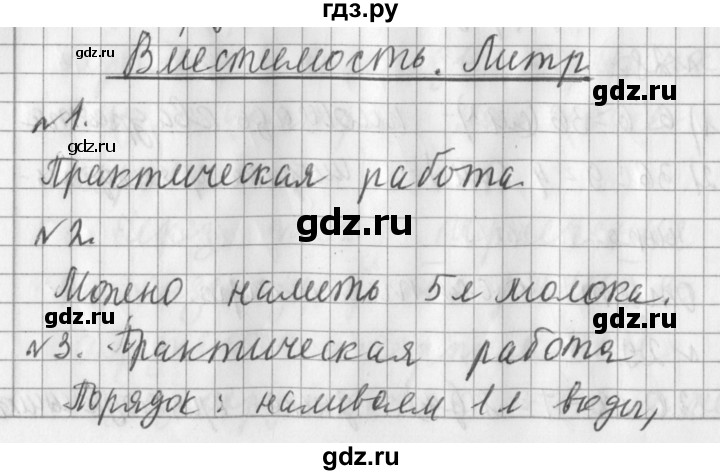 гдз.ру
Вместимость. Литр
gdz.ru
gdz.ru
gdz.ru
№1.
gdz.ru
Практическая работа
gdz.ru
gdz.ru
№2.
Можно налить 5 л молока.
gdz.ru
№3. Практическая работа
gdz.ru
Порядок: наливаем 1 л воды,
gdz.ru
gdz.ru